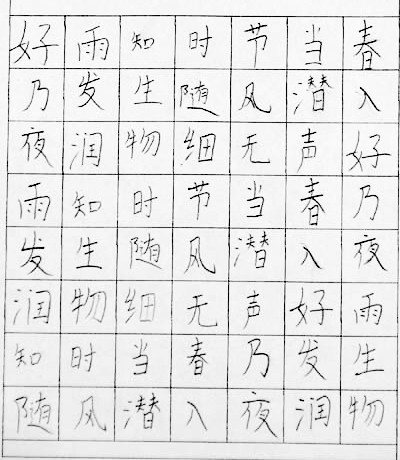 好雨知时节当春
乃发生随风潜入
夜润物细无声好
雨知时节当春乃
发生随风潜入夜
润物细无声好雨
知时当春乃发生
随风潜入夜润物